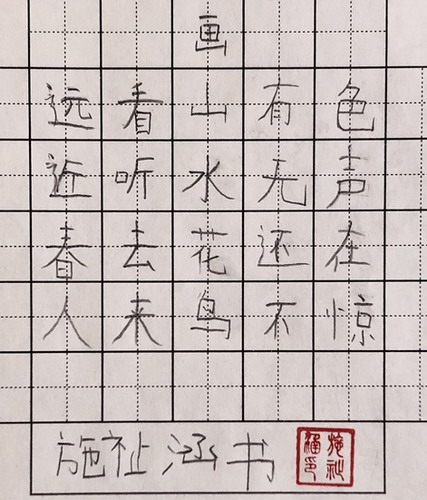 画
远看山有色
近听水无声
春去花还在
人来鸟不惊
施祉涵书
施祉涵印